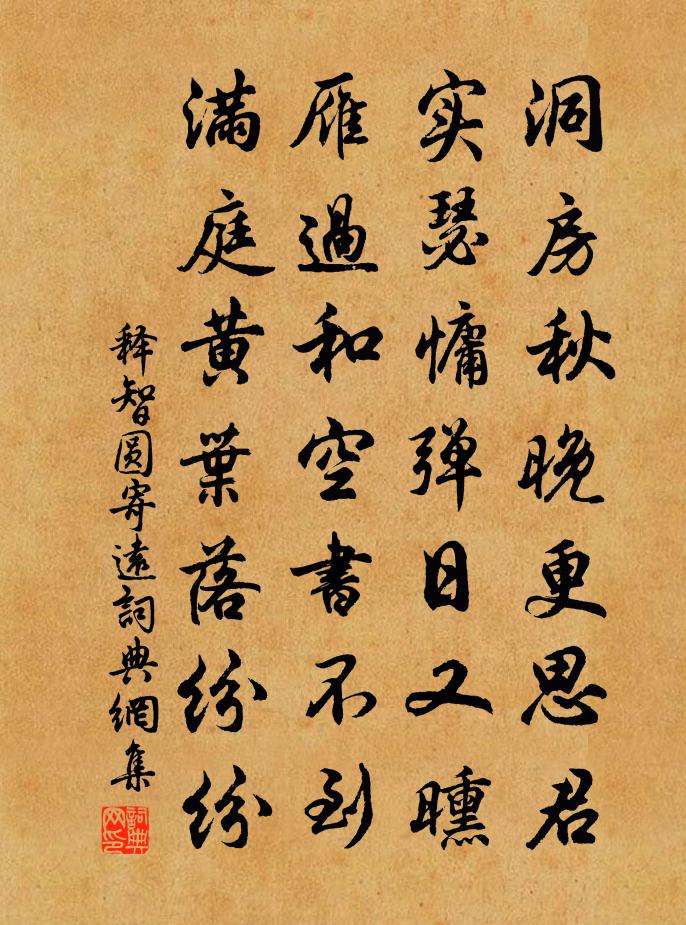 洞房秋晚更思君
实瑟慵弹日又曛
雁過和空書不到
满庭黄葉落紛紛
释智圆寄遠詞典網集
詞典网印